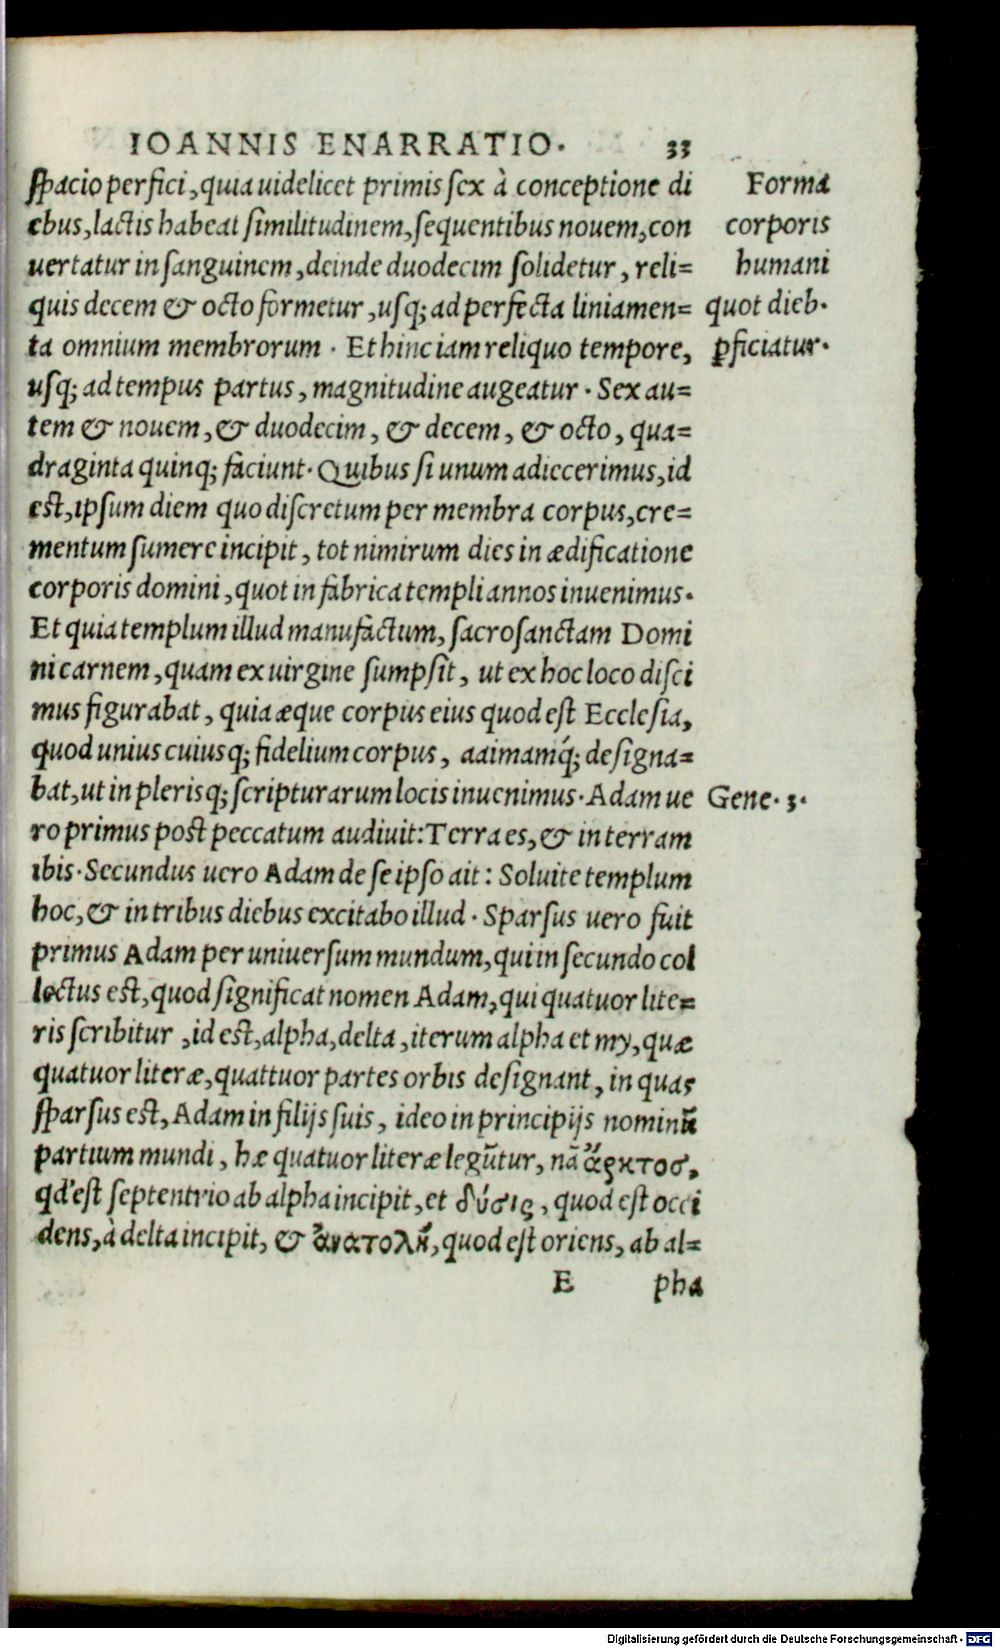 IOANNIS ENARRATIO. 33
spacio perfici, quia uidelicet primis sex à conceptione di
ebus, lactis habeat similitudinem, sequentibus nouem, con
uertatur in sanguinem, deinde duodecim solidetur, reli=
quis decem & octo formetur, usq; ad perfecta liniamen=
ta omnium membrorum . Et hinc iam reliquo tempore,
usq; ad tempus partus, magnitudine augeatur . Sex au=
tem & nouem, & duodecim, & decem, & octo, qua=
draginta quinq; faciunt. Quibus si unum adiecerimus, id
est, ipsum diem quo discretum per membra corpus, cre=
mentum sumere incipit, tot nimirum dies in ædificatione
corporis domini, quot in fabrica templi annos inuenimus.
Et quia templum illud manufactum, sacrosanctam Domi
ni carnem, quam ex uirgine sumpsit, ut ex hoc loco disci
mus figurabat, quia æque corpus eius quod est Ecclesia,
quod unius cuiusq; fidelium corpus, aaimamq́; designa=
bat, ut in plerisq; scripturarum locis inuenimus. Adam ue
ro primus post peccatum audiuit: Terra es, & in terram
ibis. Secundus uero Adam de se ipso ait: Soluite templum
hoc, & in tribus diebus excitabo illud . Sparsus uero fuit
primus Adam per uniuersum mundum, qui in secundo col
lectus est, quod significat nomen Adam, qui quatuor lite=
ris scribitur , id est, alpha, delta , iterum alpha et my, quæ
quatuor literæ, quattuor partes orbis designant, in quas
sparsus est, Adam in filijs suis, ideo in principijs nominũ
partium mundi, hæ quatuor literæ legũtur, nã ἄρκτοσ,
qd' est septentrio ab alpha incipit, et δύσις, quod est occi
dens, à delta incipit, & ἀνατολὴ, quod est oriens, ab al=
E pha
Forma
corporis
humani
quot dieb.
ꝑficiatur.
Gene. 3.
Digitalisierung gefördert durch die Deutsche Forschungsgemeinschaft - DFG